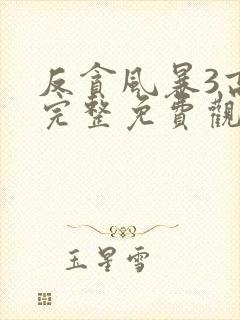 反貪風暴3高
完整免費觀
玉星雪